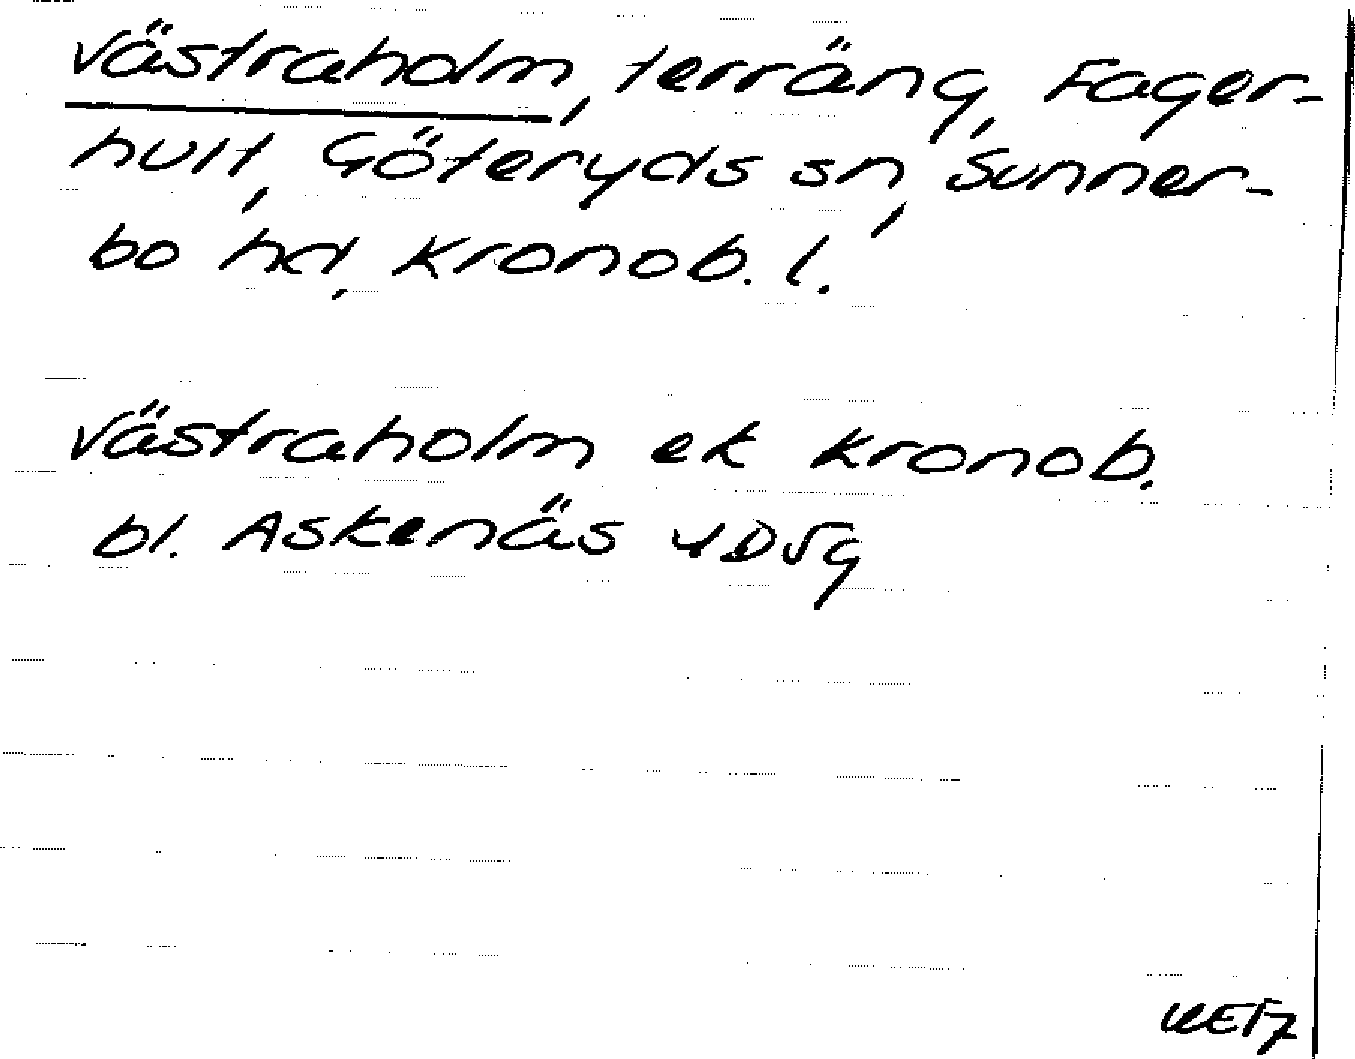 Västraholm, terräng, Fager-
hult, Göteryds sn, Sunner-
bo hd, Kronob. l.
Västraholm ek Kronob.
bl. Askenäs